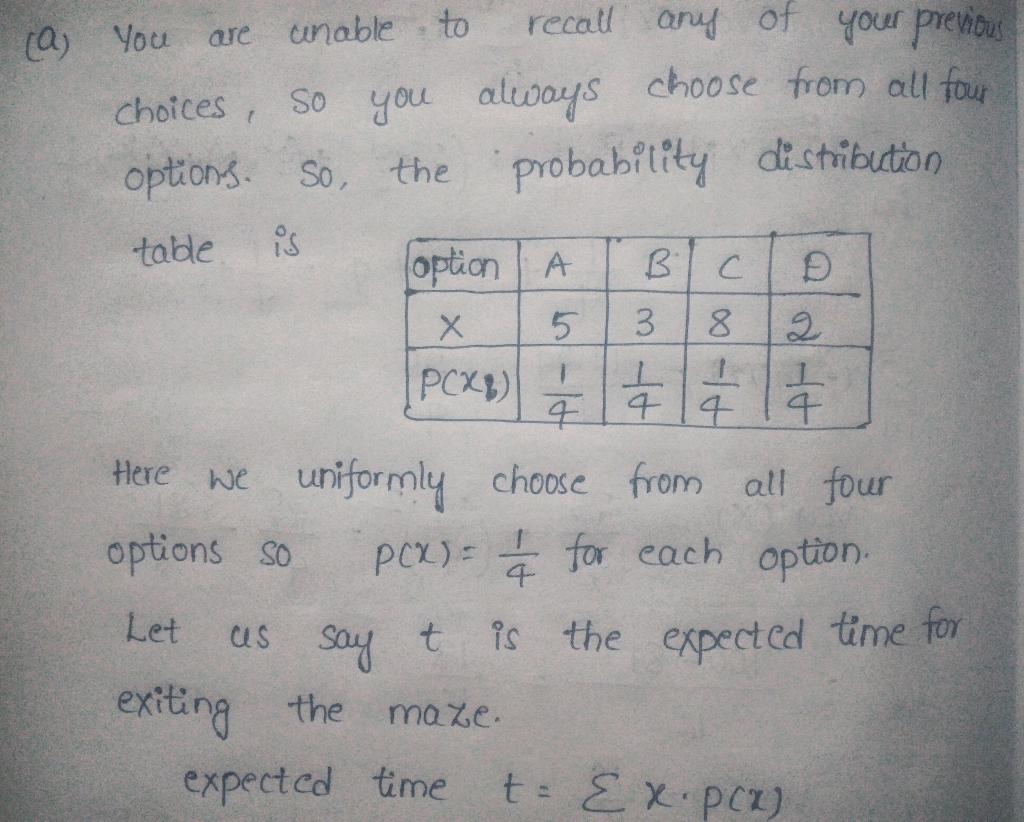 (a) You are unable to recall any of your previous
choices, so you always choose from all four
options. So, the probability distribution
table is
option A B C D
X 5 3 8 2
P(X) 1/4 1/4 1/4 1/4
Here we uniformly choose from all four
options so p(x) = 1/4 for each option.
Let us say t is the expected time for
exiting the maze.
expected time t = Σ x · p(x)